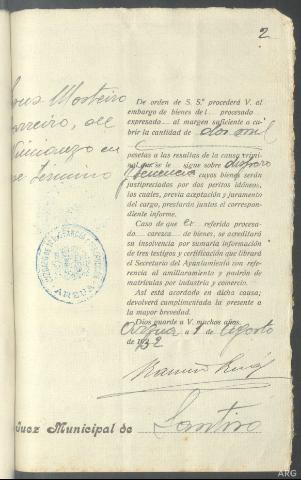 2
De orden de S. S.ª procederá V. al
embargo de bienes del procesado
expresado al margen suficiente a cu-
brir la cantidad de dos mil
pesetas a las resultas de la causa crimi-
nal que se le sigue sobre disparo
y tenencia cuyos bienes serán
justipreciados por dos peritos idóneos,
los cuales, previa aceptación y juramento
del cargo, prestarán juntos el correspon-
diente informe.
Caso de que el referido procesa-
do carezca de bienes, se acreditará
su insolvencia por sumaria información
de tres testigos y certificación que librará
el Secretario del Ayuntamiento con refe-
rencia al amillaramiento y padrón de
matrículas por industria y comercio.
Así está acordado en dicha causa;
devolverá cumplimentada la presente a
la mayor brevedad.
Dios guarde a V. muchos años.
Arzua a 1 de Agosto
de 1932
Ramón
Juez Municipal de Santiso
Mosteiro
en
término
ARZUA
ARG